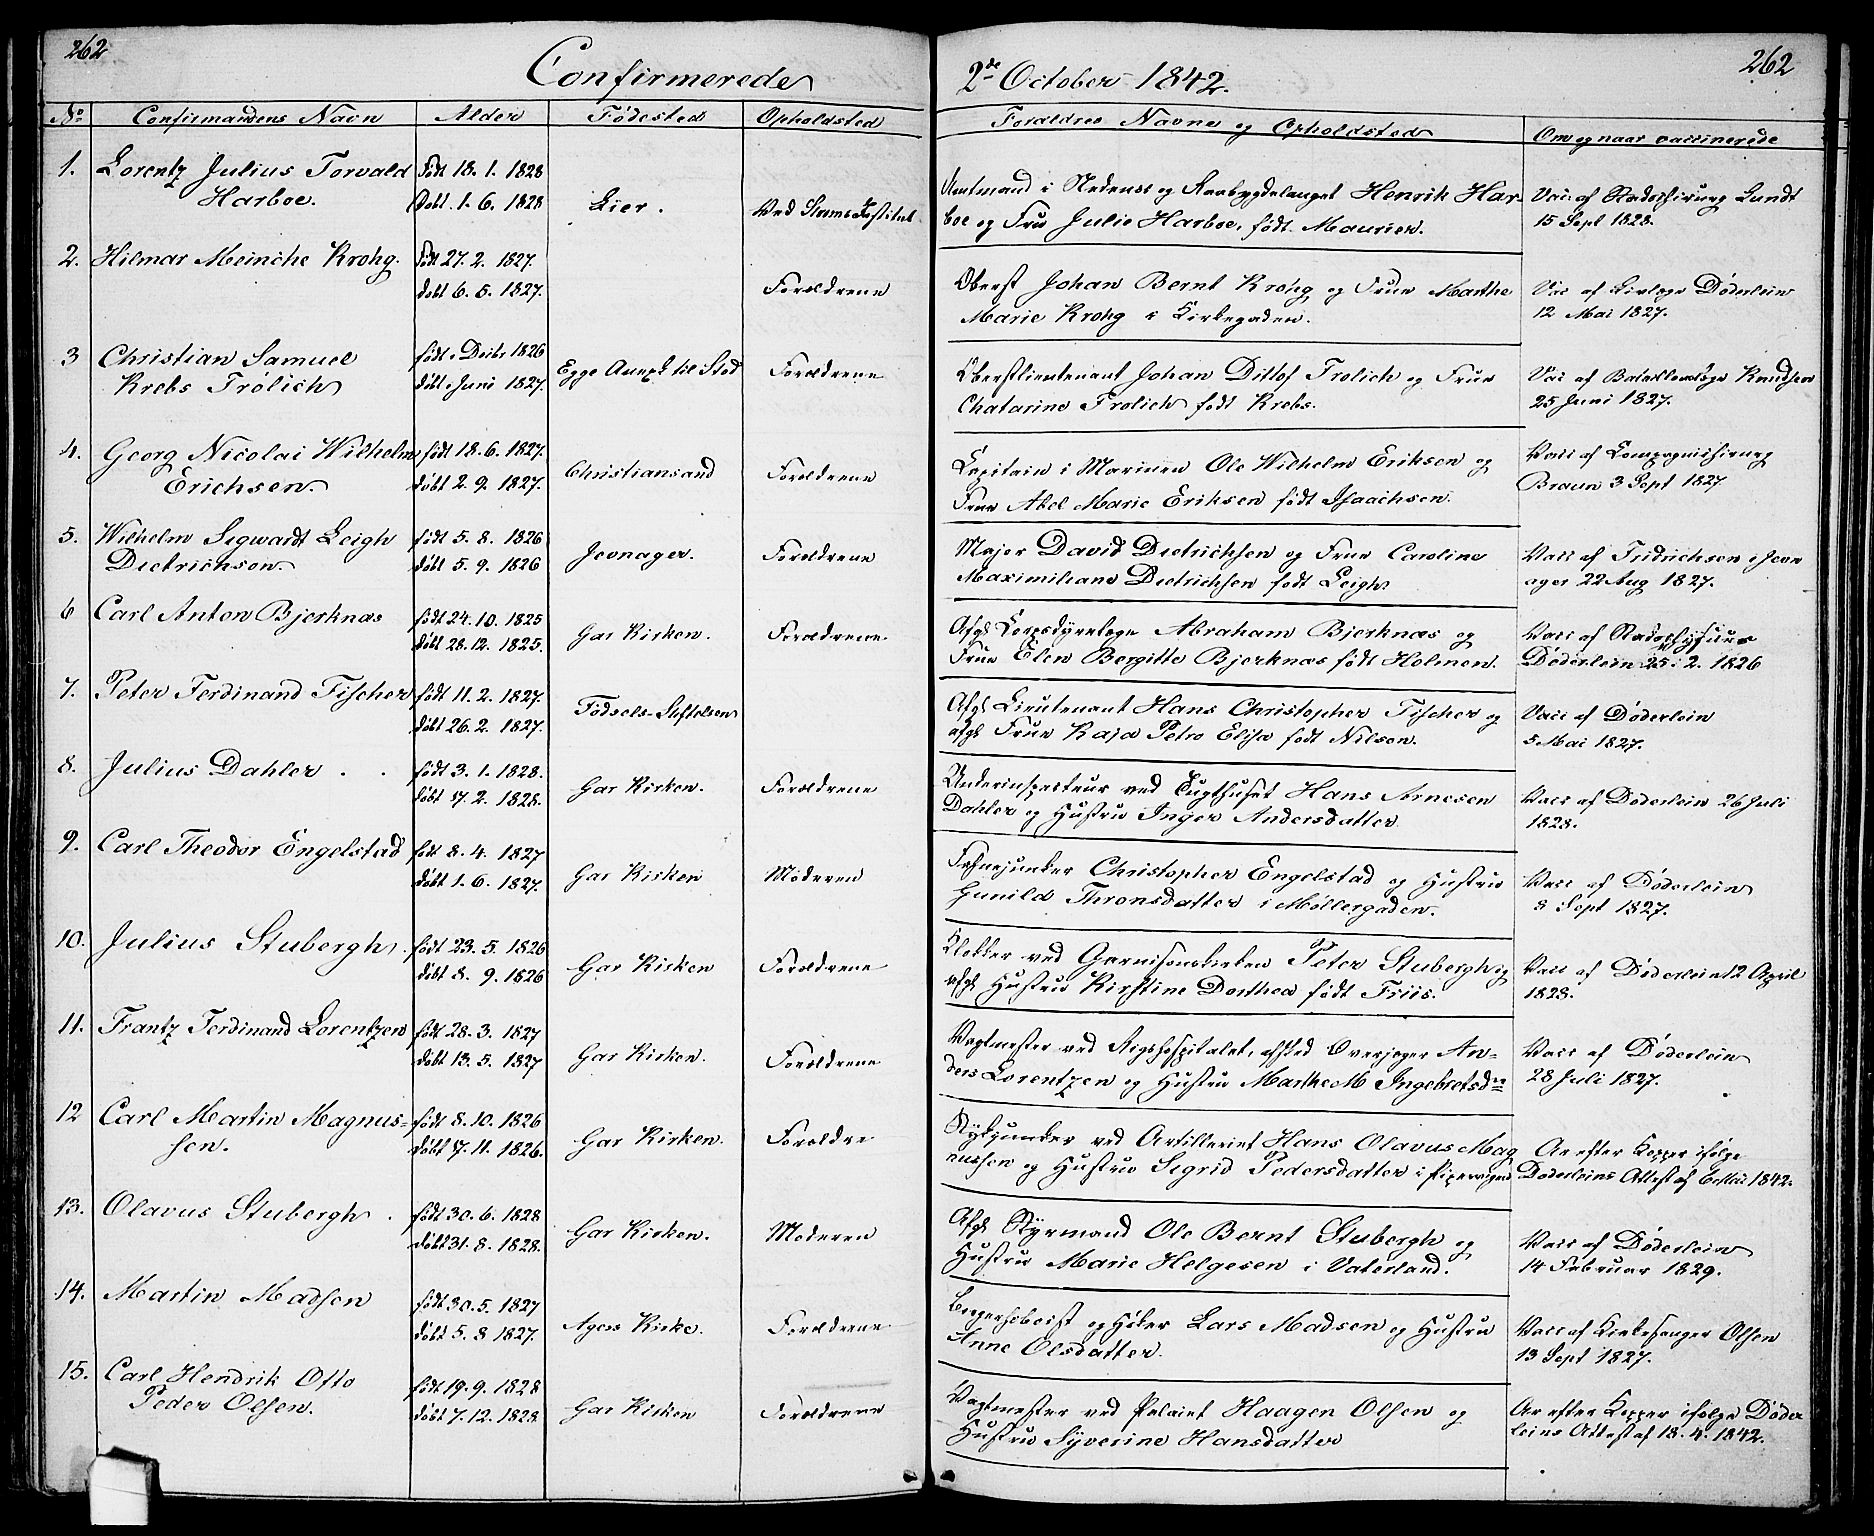 262
Confirmerede
No Confirmandens Navn Alder Fødested Opholdsted
1. Lorentz Julius Torvald Født 18. 1. 1828
Harboe. Døbt. 1. 6. 1828 Lier. Ved Institut
2. Hilmar Meinche Krohg. Født 27. 2. 1827.
døbt 6. 5. 1827. Forældrene
3 Christian Samuel født i Decbr 1826
Krebs Frölich døbt i Juni 1827. Egge Annex til Stod Forældrene
4. Georg Nicolai Wilhelm født 18. 6. 1827.
Erichsen. døbt 2. 9. 1827. Christiansand Forældrene
5. Wilhelm Sigwardt Leigh født 5. 8. 1826
Dietrichson. døbt 5. 9. 1826 Jevnager. Forældrene
6 Carl Anton Bjerknæs født 24. 10. 1825
døbt 28. 12. 1825. Gar Kirken. Forældrene
7. Peter Ferdinand Fischer født 11. 2. 1827.
døbt 26. 2. 1827. Fødsels-Stiftelsen
8. Julius Dahler . . født 3. 1. 1828.
døbt 17. 2. 1828. Gar Kirken. Forældrene
9. Carl Theodor Engelstad født 8. 4. 1827
døbt 1. 6. 1827. Gar Kirken Moderen
10. Julius Stubergh. født 23. 5. 1826
døbt 8. 9. 1826 Gar Kirken Forældrene
11. Frantz Ferdinand Lorentzen født 28. 3. 1827
døbt 13. 5. 1827 Gar Kirken. Forældrene
12 Carl Martin Magnus- født 8. 10. 1826
sen. døbt 17. 11. 1826. Gar Kirken. Forældre
13. Olavus Stubergh . født 30. 6. 1828
døbt 31. 8. 1828. Gar Kirken. Moderen
14. Martin Madsen født 30. 5. 1827
døbt 5. 8 1827. Agers Kirke. Forældrene
15. Carl Hendrik Otto født 19. 9. 1828
Peder Olsen. døbt 7. 12. 1828 Gar Kirken Forældrene
262
2de October 1842.
Forældres Navne og Opholdsted Om og naar vaccinerede
Amtmand i Nedenes og Raabygdelaget Henrik Har- Vacc af Lundt
boe og Fru Julie Harboe, født Maurier. 15 Sept 1828.
Oberst Johan Bernt Krohg og Frue Marthe Vac af Døderlein
Marie Krohg i Kirkegaden. 12 Mai 1827.
Oberstlieutenant Johan Ditlof Frolich og Frue Vac af Knudsen
Chatarine Frolich født Krebs. 25 Juni 1827.
Capitain i Marinen Ole Wilhelm Eriksen og Vacc af Compagniechirurg
Frue Abel Marie Eriksen født Isaachsen. Braun 3 Sept 1827
Major David Dietrichsen og Frue Caroline Vacc af Fridrichsen i Jevn
Maximiliane Dietrichsen født Leigh. ager 22 Aug 1827.
Afgl Corpsdyrelæge Abraham Bjerknæs og Vacc af
Frue Elen Bergitte Bjerknæs født Holmen. Døderlein 25. 2. 1826
Afgl Lieutenant Hans Christopher Fischer og Vacc af Døderlein
afgl Frue Kaja Petro Elisa født Nilsen. 5 Mai 1827.
Underinspecteur ved Tugthuset Hans Arnesen Vacc af Døderlein 26 Juli
Dahler og Hustru Inger Andersdatter 1828.
Fahnejunker Christopher Engelstad og Hustru Vacc af Døderlein
Gunild Thronsdatter i Møllergaden. 8 Sept 1827.
Klokker ved Garnisonskirken Peter Stubergh og Vacc af Døderlein 12 April
afgl Hustru Kirstine Dorthea født Friis. 1828.
Vagtmester ved Rigshospitalet, afsked Overjæger An- Vacc af Døderlein
ders Lorentzen og Hustru Marthe M Ingebretsdr 28 Juli 1827.
Stykjunker ved Artilleriet Hans Olavus Mag Ar efter Kopper ifølge
nussen og Hustru Sigrid Pedersdatter i Pipervigen Døderleins Attest af 6 Mai 1842.
Afgl Styrmand Ole Bernt Stubergh og Vacc af Døderlein
Hustru Marie Helgesen i Vaterland. 14 Februar 1829.
og Høker Lars Madsen og Hustru Vacc af Kirkesanger Olsen
Anne Olsdatter. 13 Sept 1827.
Vagtmester ved Palaiet Haagen Olsen og Ar efter Kopper ifølge Døder
Hustru Syverine Hansdatter leins Attest af 18. 4. 1842.